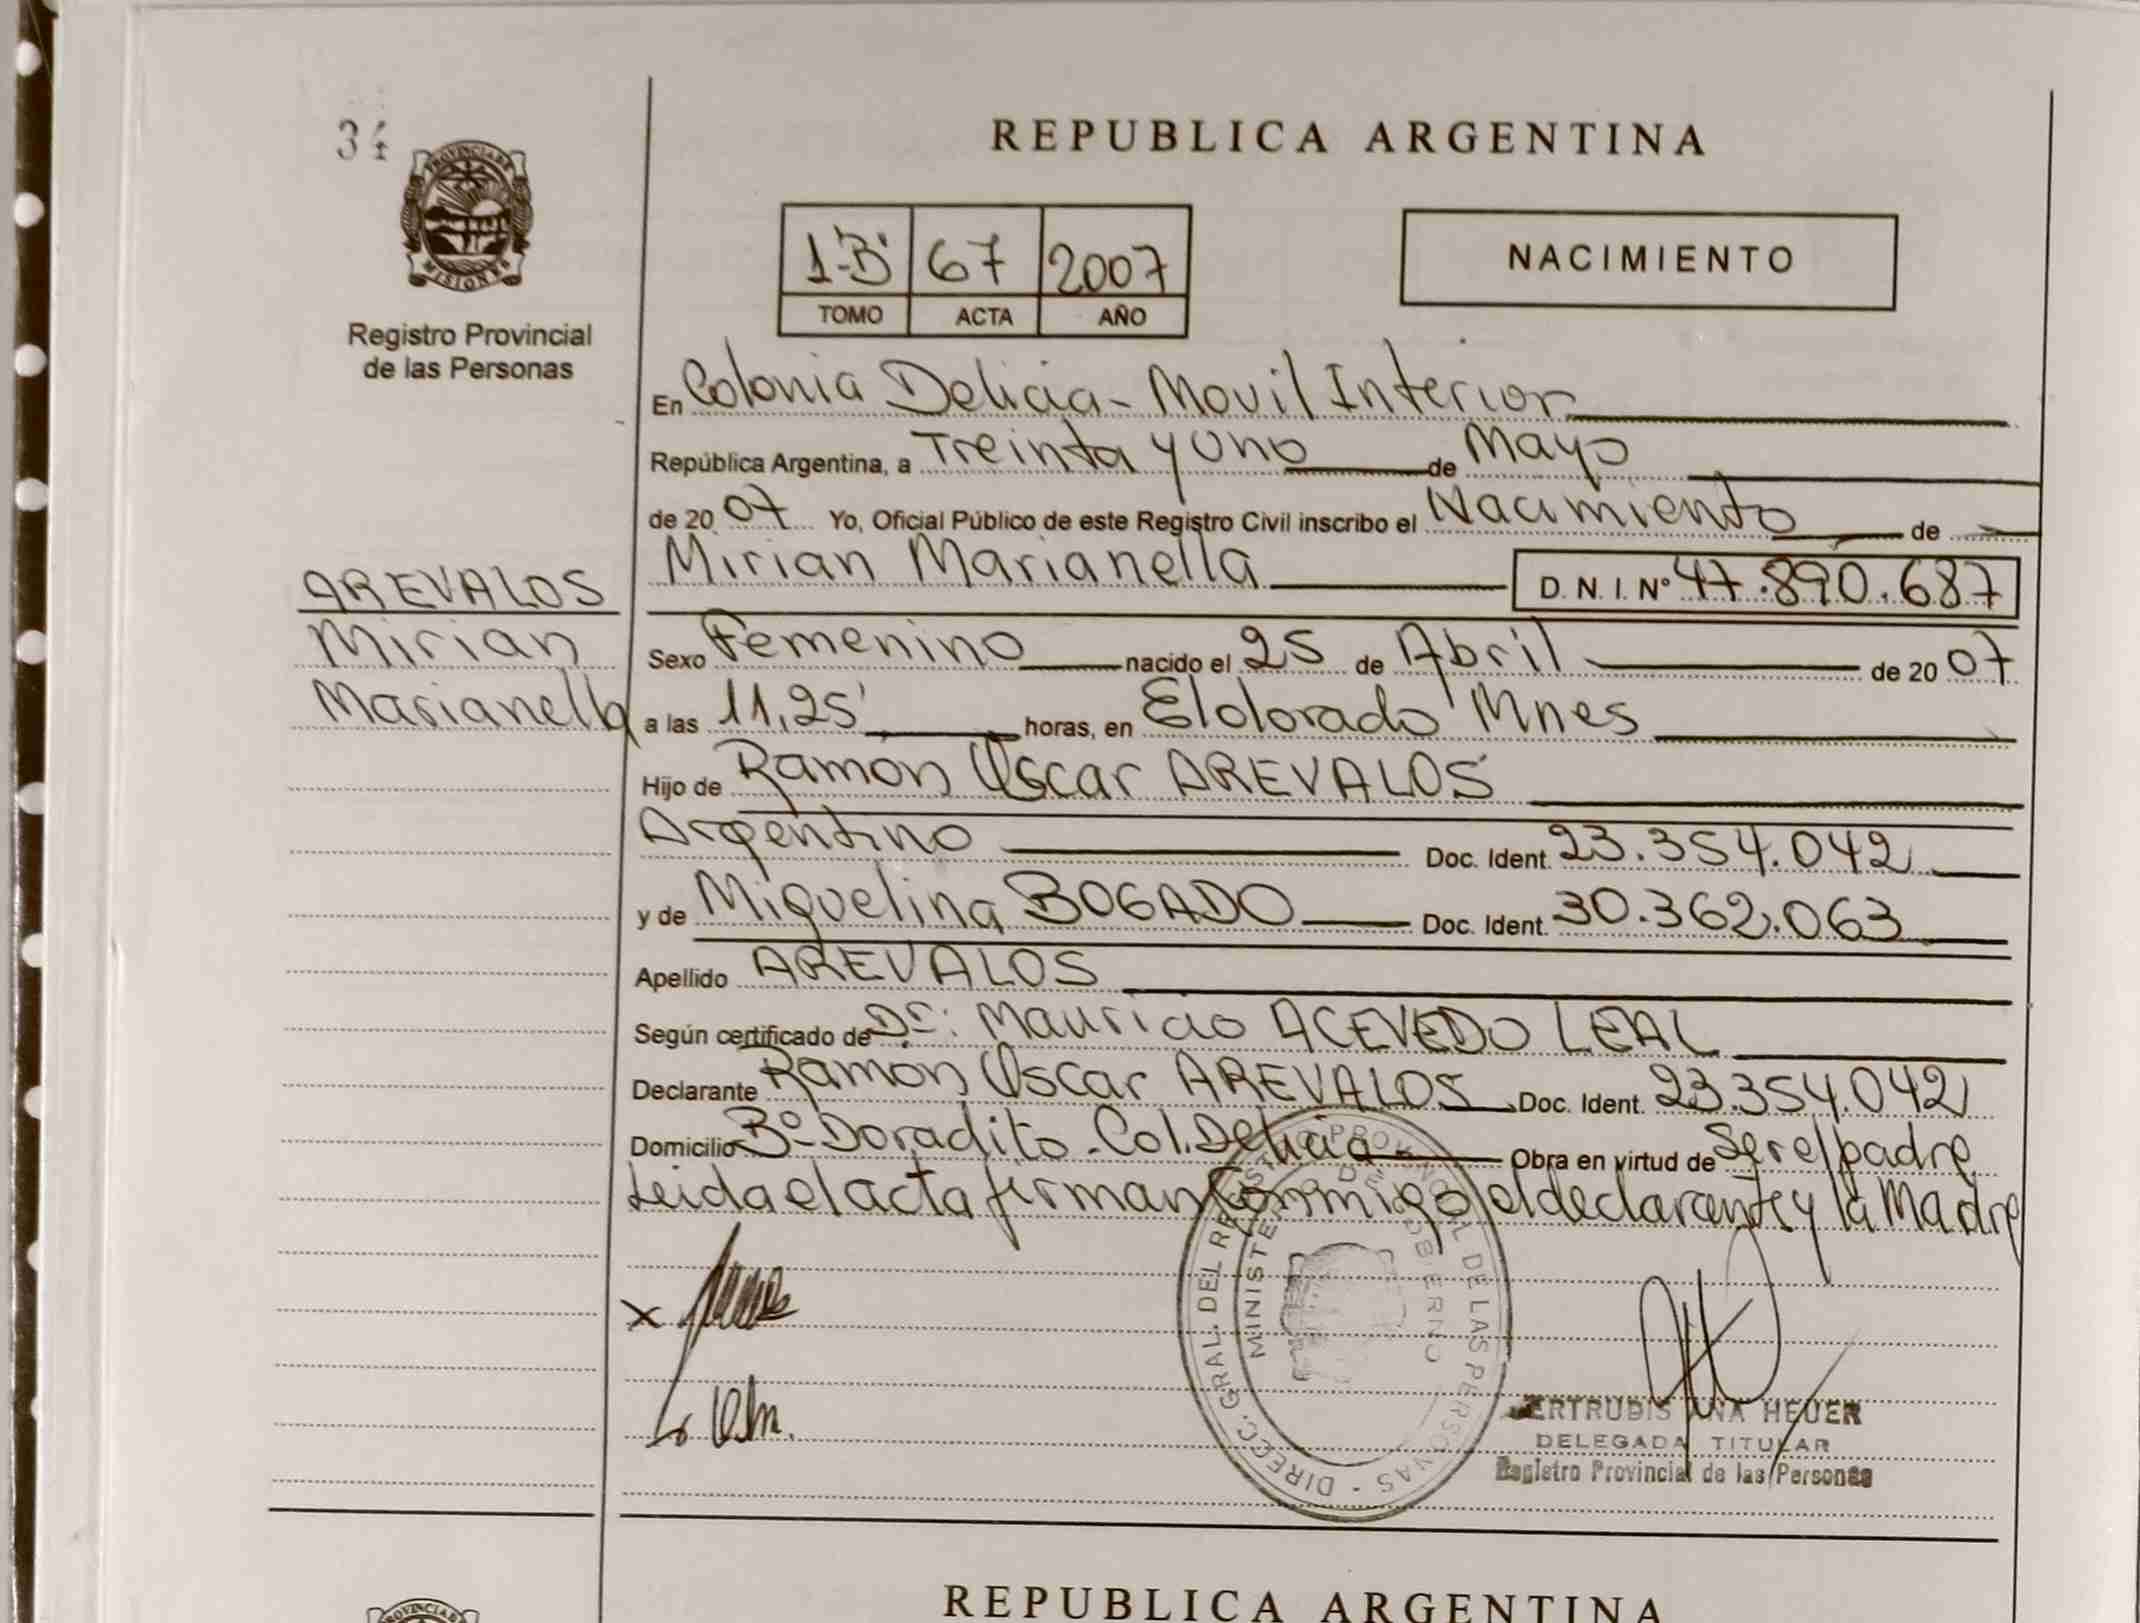 34
PROVINCIA DE
MISIONES
Registro Provincial
de las Personas
REPUBLICA ARGENTINA
1-B 67 2007
TOMO ACTA AÑO
NACIMIENTO
En Colonia Delicia - Movil Interior
República Argentina, a Treinta y Uno de Mayo
de 20 07 Yo, Oficial Público de este Registro Civil inscribo el Nacimiento de
Mirian Marianella D. N. I. Nº 47.890.687
AREVALOS
Mirian
Marianella
Sexo Femenino nacido el 25 de Abril de 20 07
a las 11,25' horas, en Eldorado Mnes
Hijo de Ramón Oscar AREVALOS
Argentino Doc. Ident. 23.354.042
y de Miguelina BOGADO Doc. Ident. 30.362.063
Apellido AREVALOS
Según certificado de Dr: Mauricio ACEVEDO LEAL
Declarante Ramón Oscar AREVALOS Doc. Ident. 23.354.042
Domicilio Bº Doradito - Col. Delicia Obra en virtud de Ser el padre
Leida el acta firman Conmigo el declarante y la Madre
DIRECC. GRAL. DEL REGISTRO PROVINCIAL DE LAS PERSONAS
MINISTERIO DE GOBIERNO
GERTRUDIS ANA HEUER
DELEGADA TITULAR
Registro Provincial de las Personas
REPUBLICA ARGENTINA